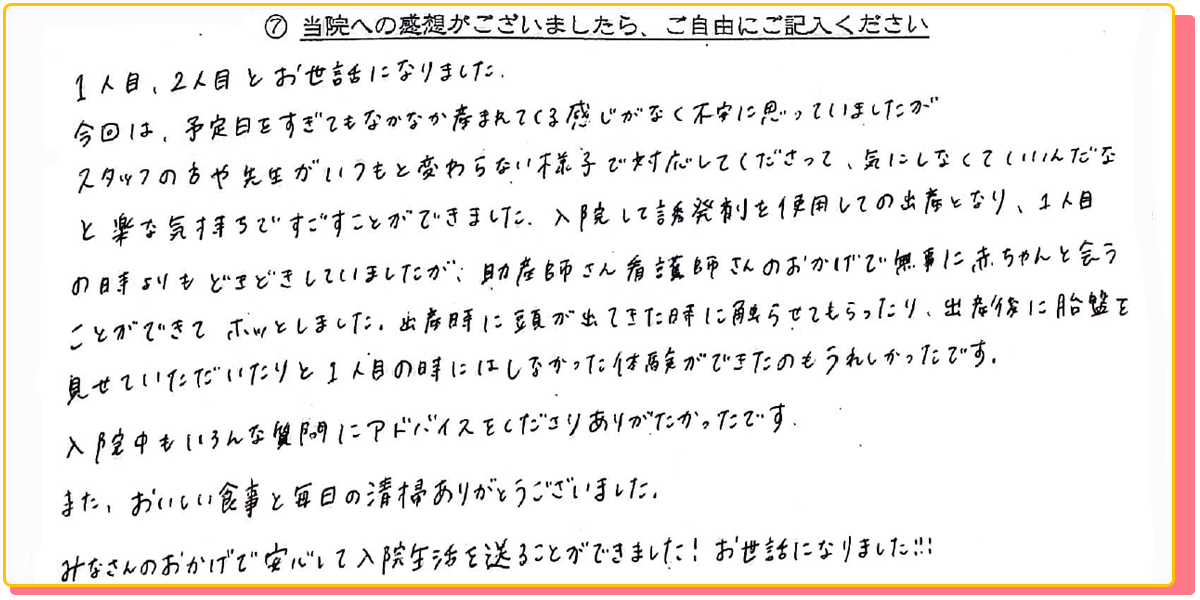 ⑦ 当院への感想がございましたら、ご自由にご記入ください
1人目、2人目とお世話になりました.
今回は、予定日をすぎてもなかなか産まれてくる感じがなく不安に思っていましたが
スタッフの方や先生がいつもと変わらない様子で対応してくださって、気にしなくていいんだな
と楽な気持ちですごすことができました. 入院して誘発剤を使用しての出産となり、1人目
の時よりもどきどきしていましたが、助産師さん看護師さんのおかげで無事に赤ちゃんと会う
ことができてホッとしました。出産時に頭が出てきた時に触らせてもらったり、出産後に胎盤を
見せていただいたりと1人目の時にはしなかった体験ができたのもうれしかったです。
入院中もいろんな質問にアドバイスをくださりありがたかったです.
また、おいしい食事と毎日の清掃ありがとうございました。
みなさんのおかげで安心して入院生活を送ることができました! お世話になりました!!!